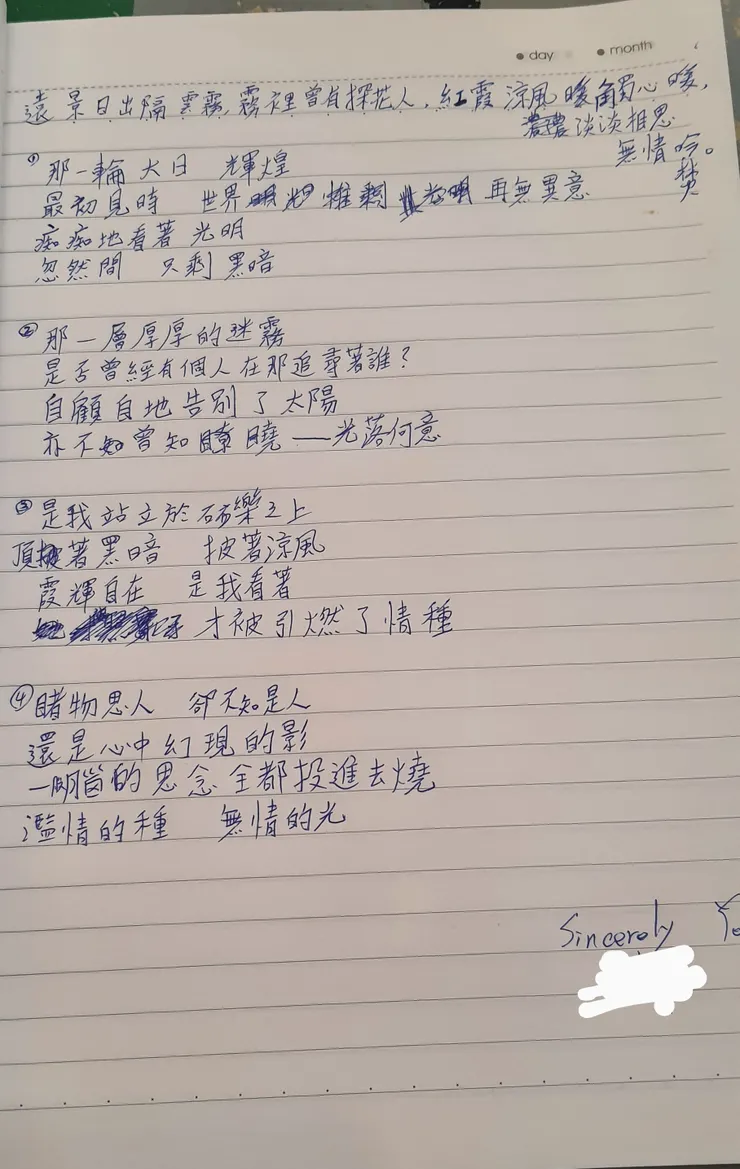 day month
遠景日出隔雲霧,霧裡曾有探花人,紅霞涼風暖觸心暖,
濃濃淡淡相思
無情吟。
焚
① 那一輪大日 輝煌
最初見時 世界 惟剩 光明 再無異意
痴痴地看著光明
忽然間 只剩黑暗
② 那一層厚厚的迷霧
是否曾經有個人在那追尋著誰?
自顧自地告別了太陽
亦不知曾知瞭曉——光落何意
③ 是我站立於礫之上
頂著黑暗 披著涼風
霞輝自在 是我看著
才被引燃了情種
④ 睹物思人 卻不知是人
還是心中幻現的影
一腦的思念全都投進去燒
濫情的種 無情的光
Sincerely Yo